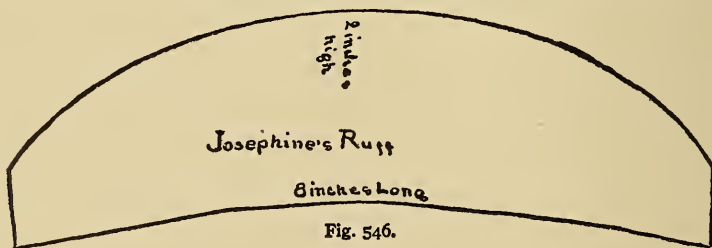 2 inches
high
Josephine's Ruff
8 inches Long
Fig. 546.